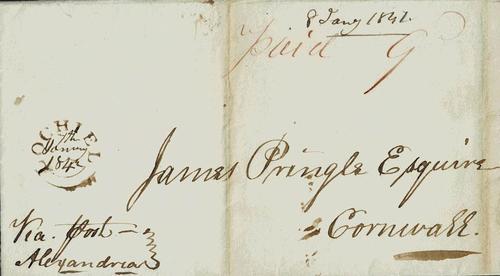 8 Jany 1842.
Paid 9
LOCHIEL
7th
January
1842
James Pringle Esquire
Cornwall.
Via. Post
Alexandria